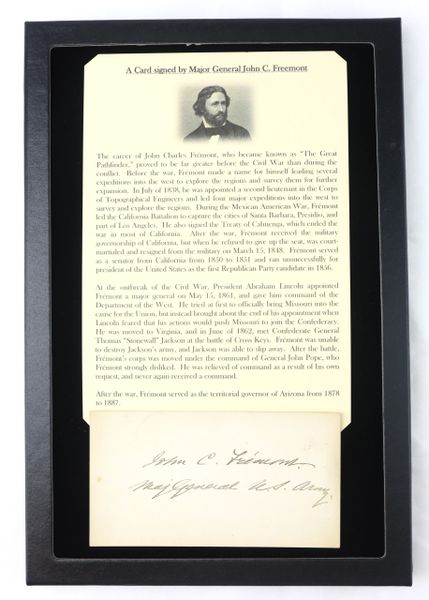 A Card signed by Major General John C. Freemont
The career of John Charles Frémont, who became known as "The Great
Pathfinder," proved to be far greater before the Civil War than during the
conflict. Before the war, Frémont made a name for himself leading several
expeditions into the west to explore the regions and survey them for further
expansion. In July of 1838, he was appointed a second lieutenant in the Corps
of Topographical Engineers and led four major expeditions into the west to
survey and explore the regions. During the Mexican American War, Frémont
led the California Battalion to capture the cities of Santa Barbara, Presidio, and
part of Los Angeles. He also signed the Treaty of Cahuenga, which ended the
war in most of California. After the war, Fremont received the military
governorship of California, but when he refused to give up the seat, was court-
martialed and resigned from the military on March 15, 1848. Frémont served
as a senator from California from 1850 to 1851 and ran unsuccessfully for
president of the United States as the first Republican Party candidate in 1856.
At the outbreak of the Civil War, President Abraham Lincoln appointed
Frémont a major general on May 15, 1861, and gave him command of the
Department of the West. He tried at first to officially bring Missouri into the
cause for the Union, but instead brought about the end of his appointment when
Lincoln feared that his actions would push Missouri to join the Confederacy.
He was moved to Virginia, and in June of 1862, met Confederate General
Thomas "Stonewall" Jackson at the battle of Cross Keys. Frémont was unable
to destroy Jackson's army, and Jackson was able to slip away. After the battle,
Frémont's corps was moved under the command of General John Pope, who
Frémont strongly disliked. He was relieved of command as a result of his own
request, and never again received a command.
After the war, Frémont served as the territorial governor of Arizona from 1878
to 1887.
John C. Frémont.
Maj General U.S. Army.